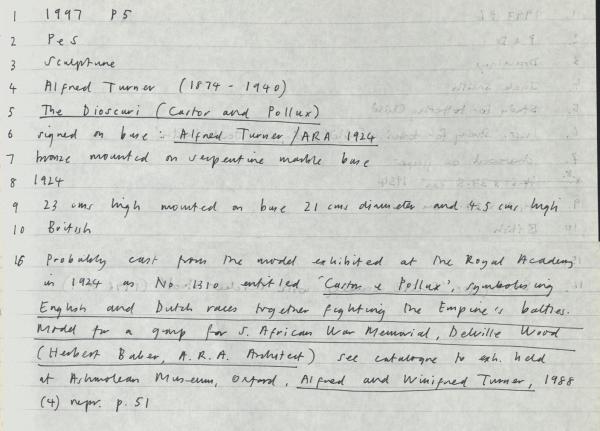 1 1997 P5
2 P e S
3 Sculpture
4 Alfred Turner (1874 - 1940)
5 The Dioscuri (Castor and Pollux)
6 signed on base : Alfred Turner /ARA 1924
7 bronze mounted on serpentine marble base
8 1924
9 23 cms high mounted on base 21 cms diameter and 4.5 cms high
10 British
16 Probably cast from the model exhibited at the Royal Academy
in 1924 as No 1310 entitled 'Castor & Pollux', symbolising
English and Dutch races together fighting the Empire's battles.
Model for a group for S. African War Memorial, Delville Wood
(Herbert Baker, A.R.A. Architect) see catalogue to exh. held
at Ashmolean Museum, Oxford, Alfred and Winifred Turner, 1988
(4) repr. p. 51